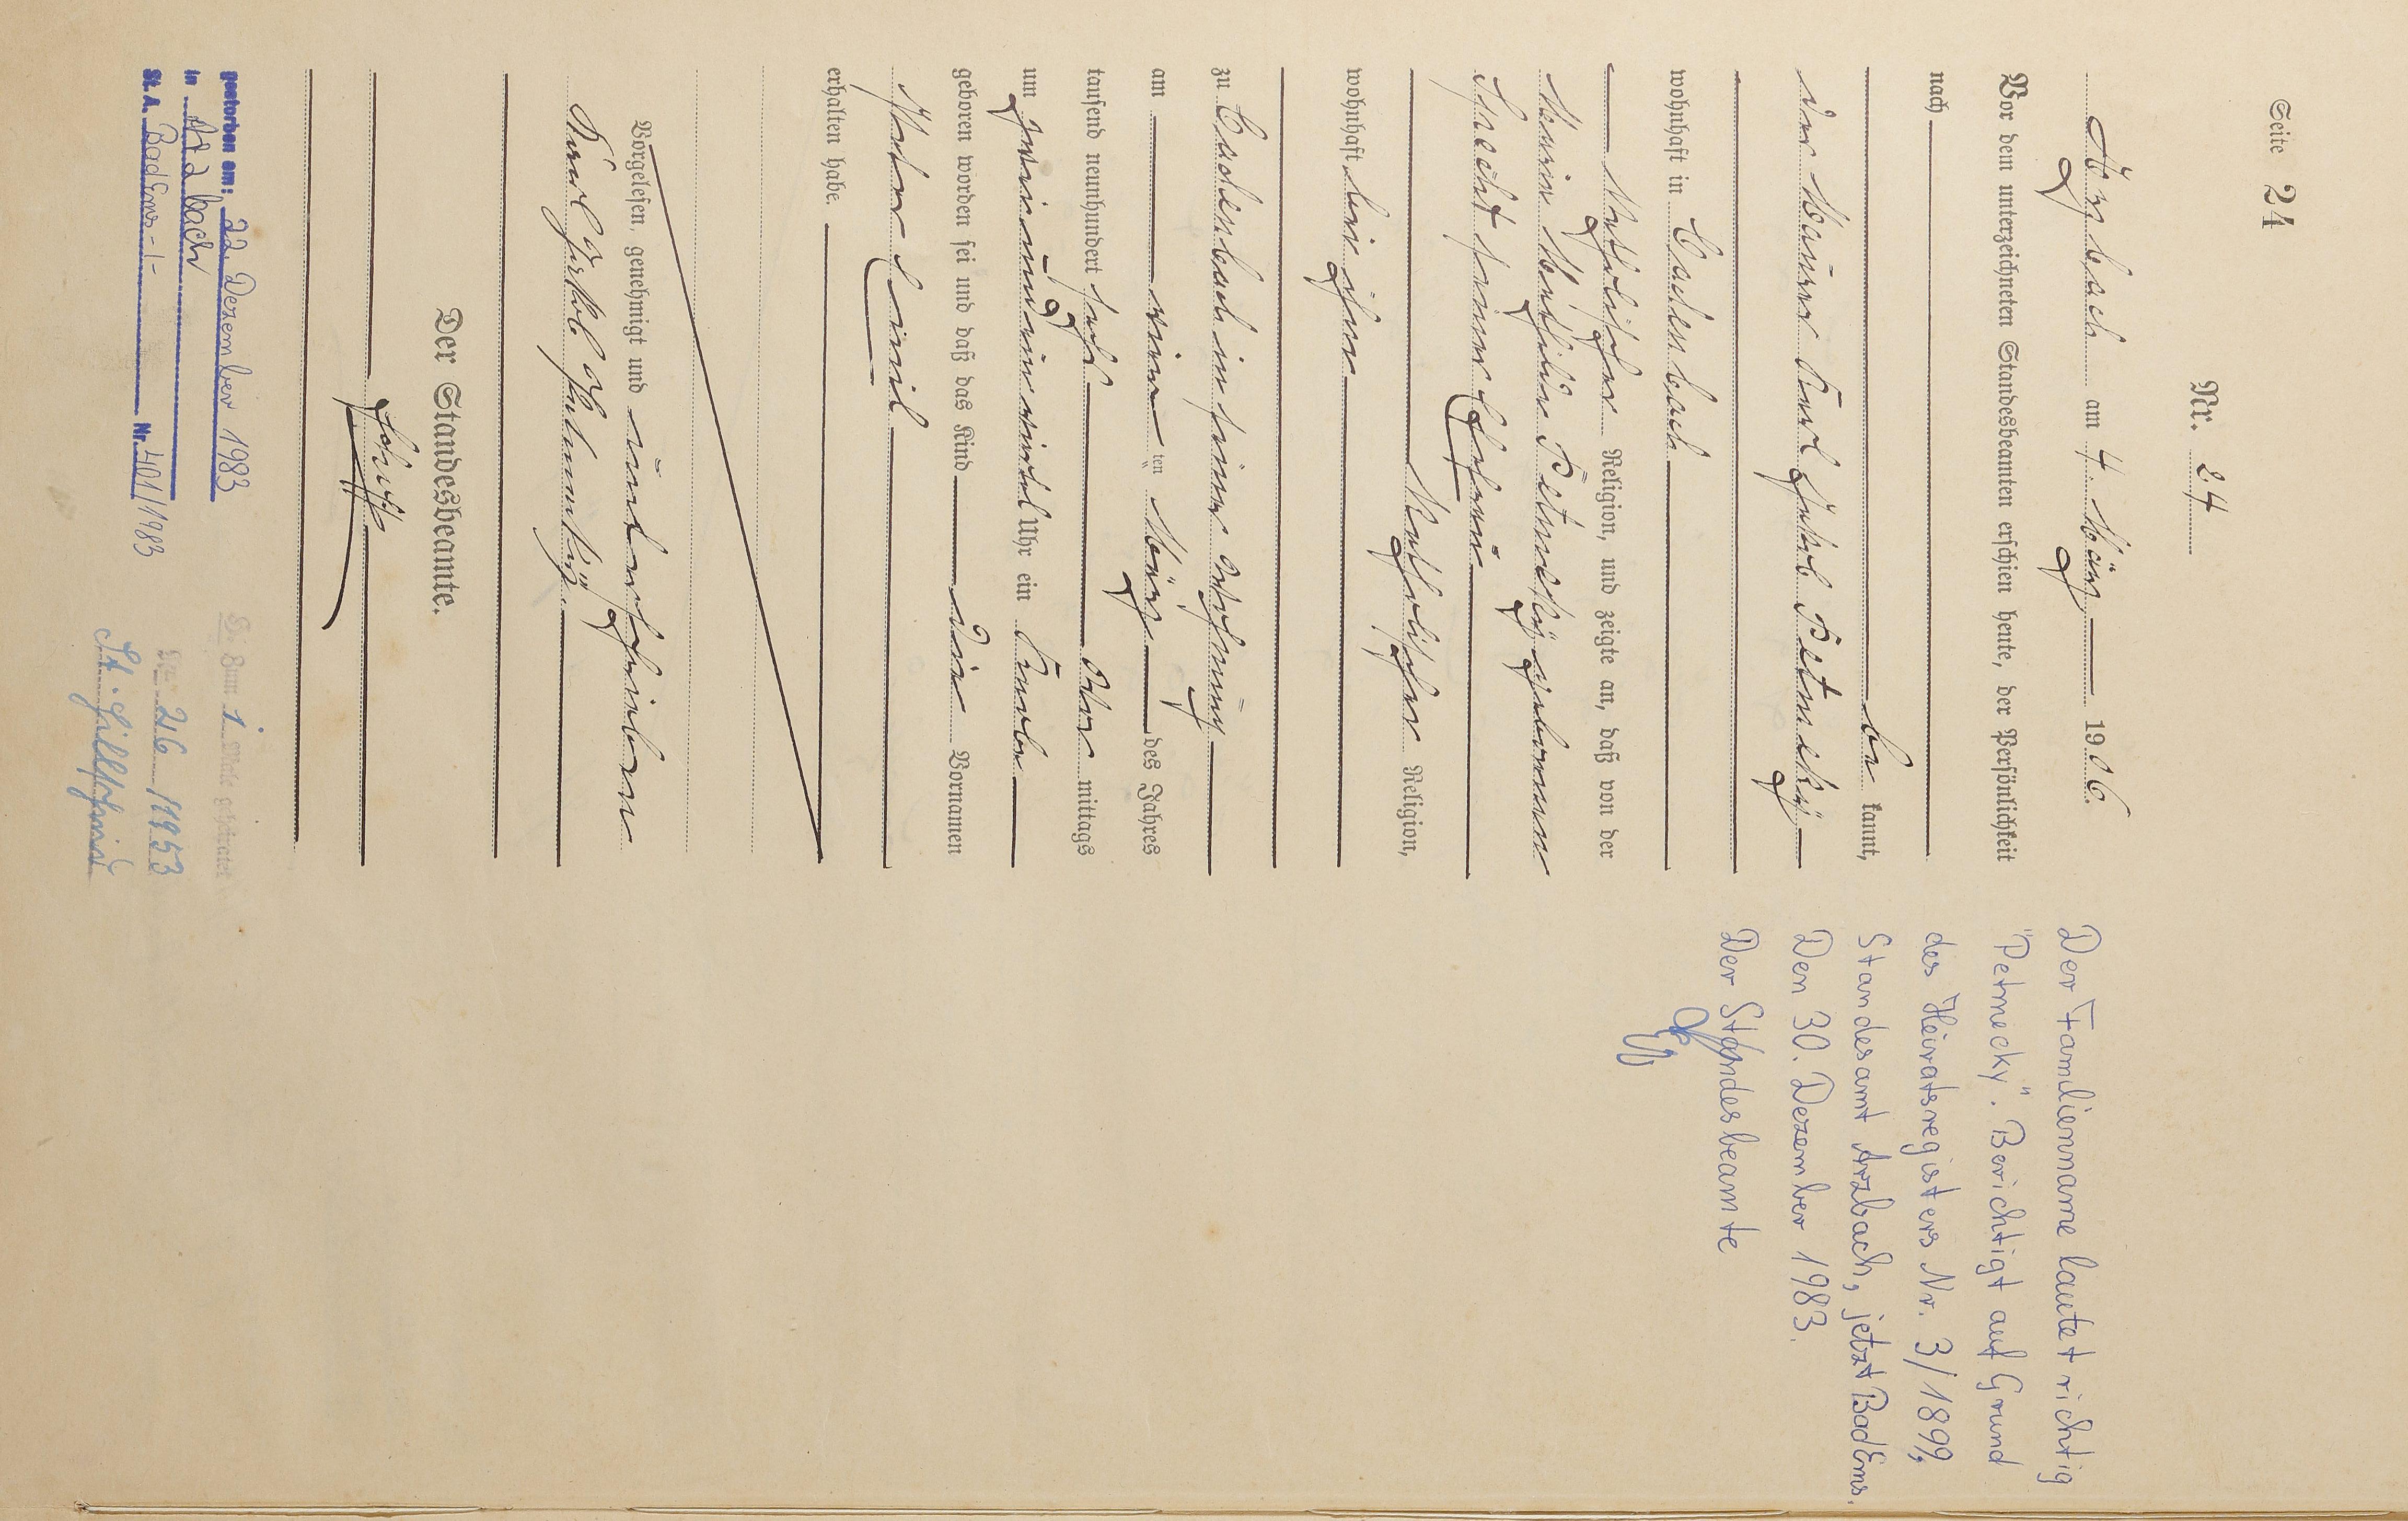 Seite 24
Nr. 24
Arzbach am 4. März 1906.
Vor dem unterzeichneten Standesbeamten erschien heute, der Persönlichkeit
nach
be kannt,
der Maurer Karl Jakob Petmecky
wohnhaft in Cadenbach
katholischer Religion, und zeigte an, daß von der
Maria Petmecky geborenen
Specht seiner Ehefrau
katholischer Religion,
wohnhaft bei ihm
zu Cadenbach in seiner Wohnung
am ten März des Jahres
tausend neunhundert sechs Vor mittags
um Uhr ein Knabe
geboren worden sei und daß das Kind den Vornamen
Peter Emil
erhalten habe.
Vorgelesen, genehmigt und unterschrieben
Karl Jakob Petmecky.
Der Standesbeamte.
gestorben am: 22. Dezember 1983
in Arzbach
St. A. Bad Ems-1- Nr. 401/1983
Zum 1. Male geheiratet
Nr. 216/1953
St.
Der Familienname lautet richtig
"Petmecky". Berichtigt auf Grund
des Heiratsregisters Nr. 3/1899,
Standesamt Arzbach, jetzt Bad Ems.
Den 30. Dezember 1983.
Der Standesbeamte